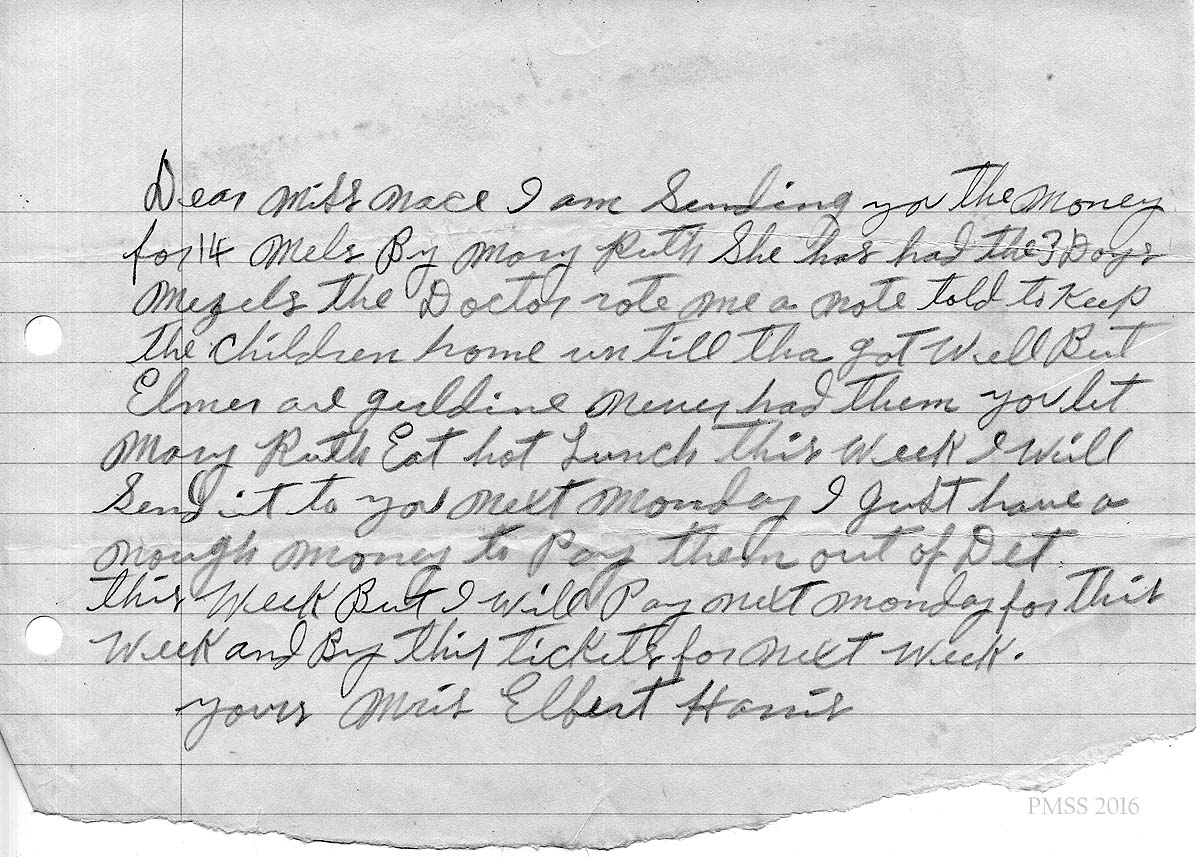 Dear Miss Nace I am Sending you the Money
for 14 Mels By Mary Ruth She has had the 3 Days
Mezels the Doctor rote me a note told to Keep
the children home un till tha got Well But
Elmer and geuldine never had them you let
Mary Ruth Eat hot Lunch this Week I Will
Send it to you Next Monday I Just have a
nough money to Pay them out of Det
this Week But I Will Pay next monday for this
Week and By this tickets for next Week.
yours Mris Elbert Harris
PMSS 2016